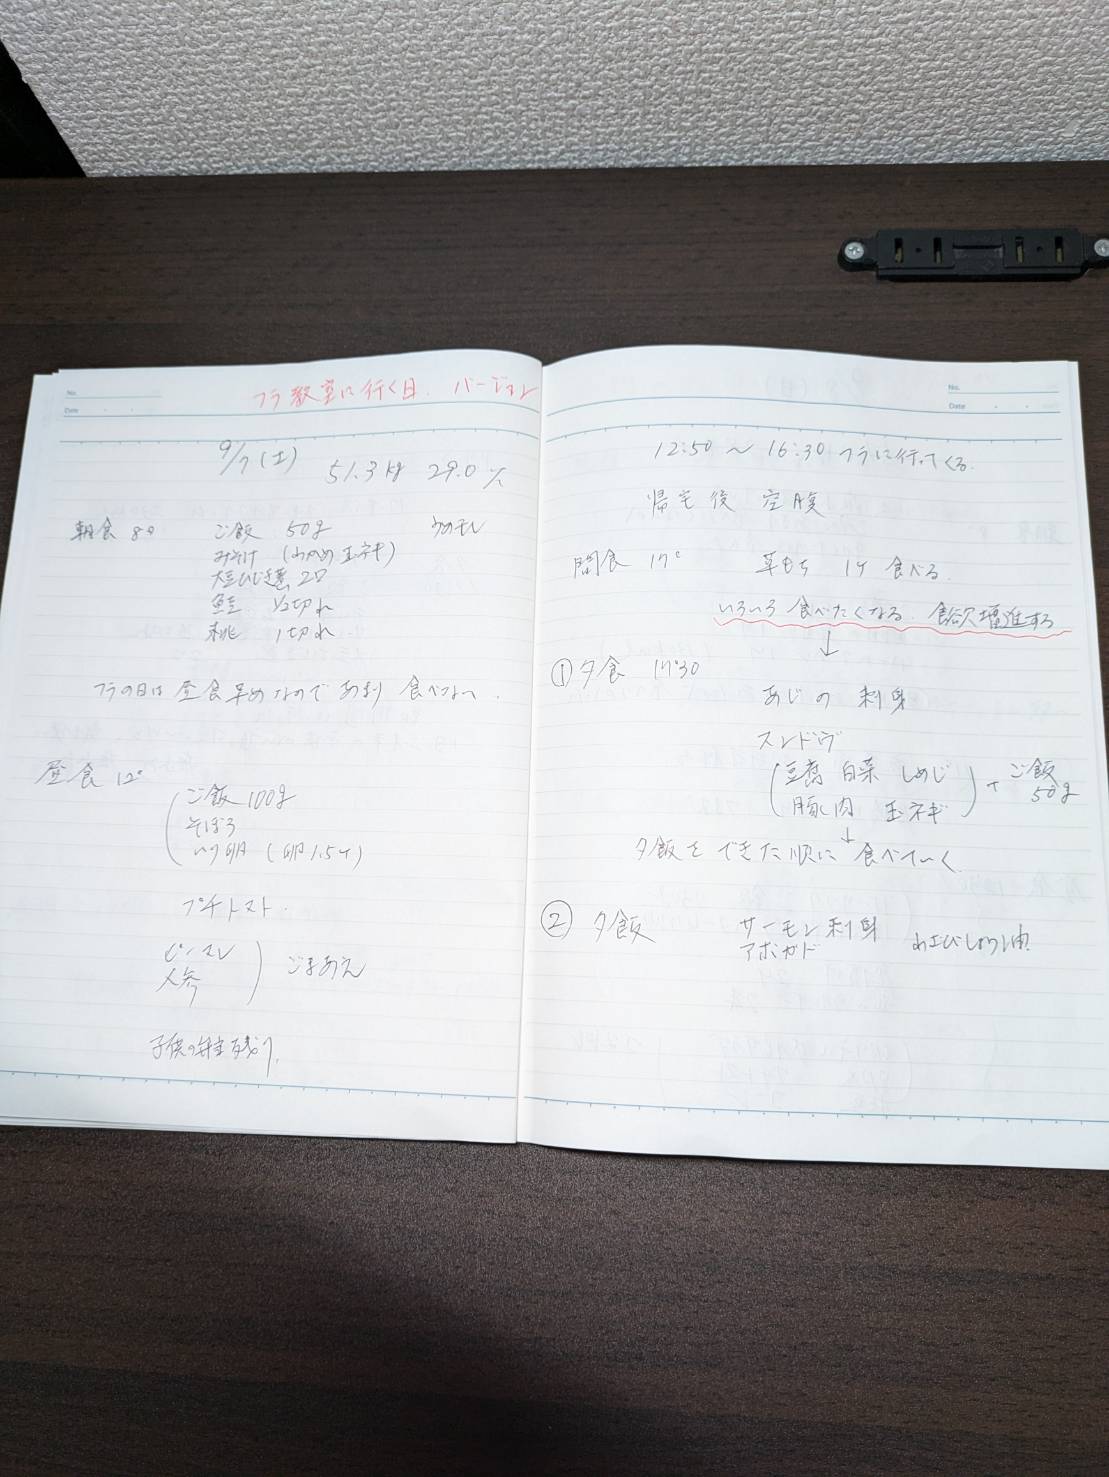 No.
Date
フラ教室に行く日. バージョン
9/7(土)
51.3kg 29.0%
朝食 8° ご飯 50g
みそ汁 (わかめ 玉ネギ)
大豆ひじき煮 2口
鮭 1/2切れ
桃 1切れ
フラの日は 昼食早めなので あまり 食べない.
昼食 12°
ご飯 100g
そぼろ
いり卵 (卵1.5ケ)
プチトマト.
ピーマン
人参
ごまあえ
子供の弁当残り.
No.
Date
12:50 ～ 16:30 フラに行ってくる.
帰宅後 空腹
間食 17° 草もち 1ケ 食べる.
いろいろ 食べたくなる. 食欲増進する
↓
① 夕食 17:30
あじの 刺身
スンドゥブ
(豆腐 白菜 しめじ
豚肉 玉ネギ)
+ ご飯 50g
↓
夕飯を できた順に 食べていく
② 夕飯 サーモン刺身
アボガド
わさびしょう油.